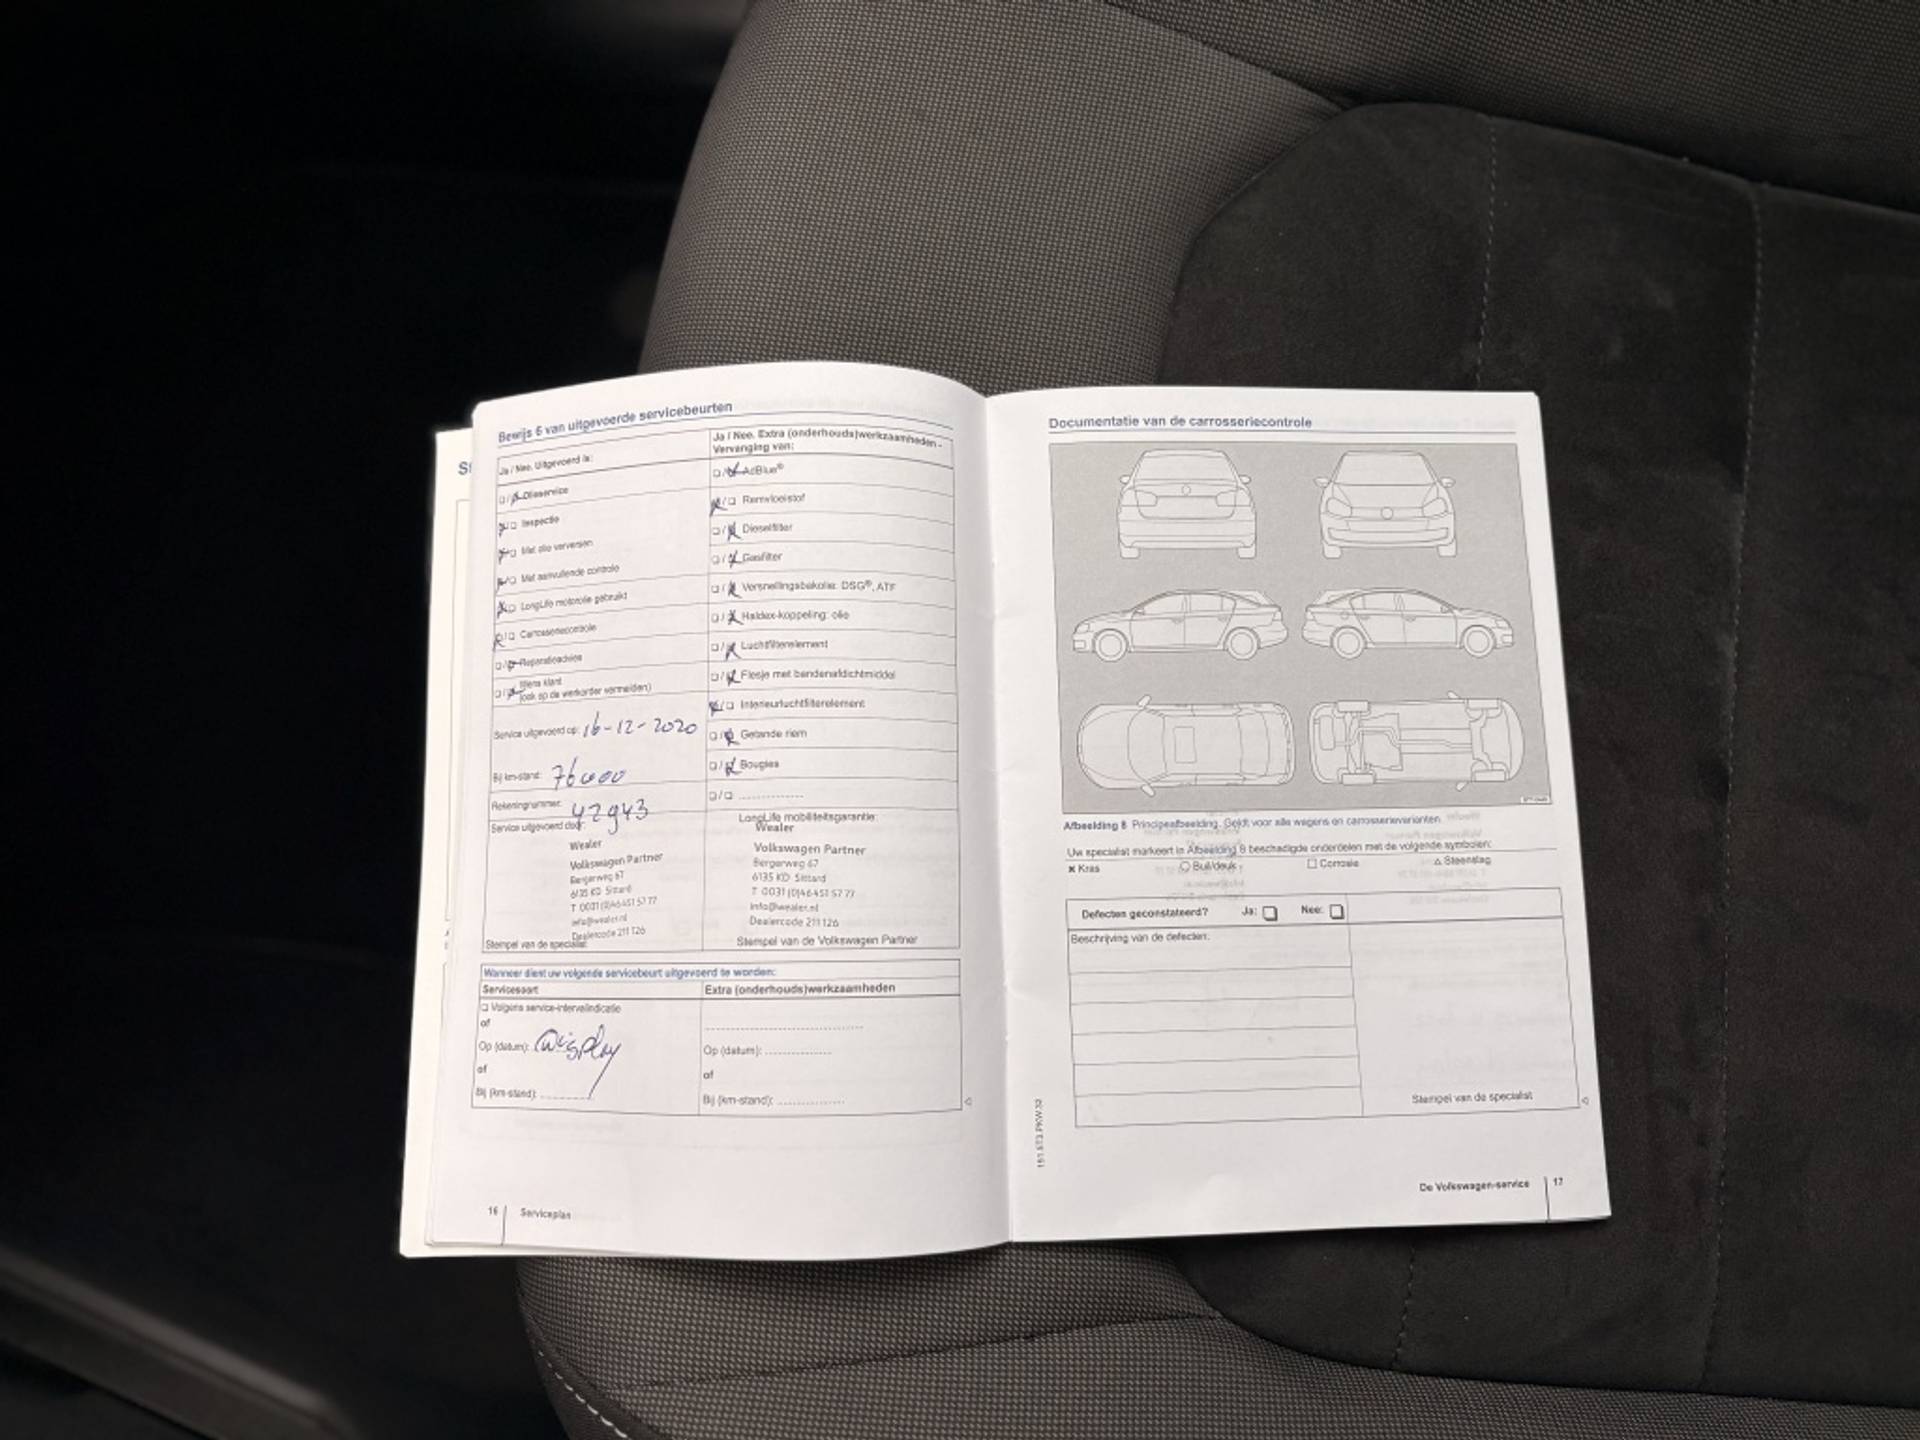 Bewijs 6 van uitgevoerde servicebeurten
Ja / Nee. Uitgevoerd is:
Olieservice
Inspectie
Met olie verversen
Met aanvullende controle
LongLife motorolie gebruikt
Carrosseriecontrole
Reparatieadvies
Wens klant
(ook op de werkorder vermelden)
Service uitgevoerd op: 16-12-2020
Bij km-stand: 76000
Rekeningnummer: 42943
Service uitgevoerd door:
Wealer
Volkswagen Partner
Bergerweg 67
6135 KD Sittard
T 0031 (0)46 451 57 77
info@wealer.nl
Dealercode 211 126
Stempel van de specialist
Ja / Nee. Extra (onderhouds)werkzaamheden -
Vervanging van:
AdBlue®
Remvloeistof
Dieselfilter
Gasfilter
Versnellingsbakolie: DSG®, ATF
Haldex-koppeling: olie
Luchtfilterelement
Flesje met bandenafdichtmiddel
Interieurluchtfilterelement
Getande riem
Bougies
LongLife mobiliteitsgarantie:
Wealer
Volkswagen Partner
Bergerweg 67
6135 KD Sittard
T 0031 (0)46 451 57 77
info@wealer.nl
Dealercode 211 126
Stempel van de Volkswagen Partner
Wanneer dient uw volgende servicebeurt uitgevoerd te worden:
Servicesoort
Volgens service-intervalindicatie
of
Op (datum): Display
of
Bij (km-stand):
Extra (onderhouds)werkzaamheden
Op (datum):
of
Bij (km-stand):
16 Serviceplan
Documentatie van de carrosseriecontrole
Afbeelding 8 Principeafbeelding. Geldt voor alle wagens en carrosserievarianten.
Uw specialist markeert in Afbeelding 8 beschadigde onderdelen met de volgende symbolen:
x Kras ○ Buil/deuk □ Corrosie △ Steenslag
Defecten geconstateerd? Ja: Nee:
Beschrijving van de defecten:
Stempel van de specialist
151.5T3.PKW.32
De Volkswagen-service 17